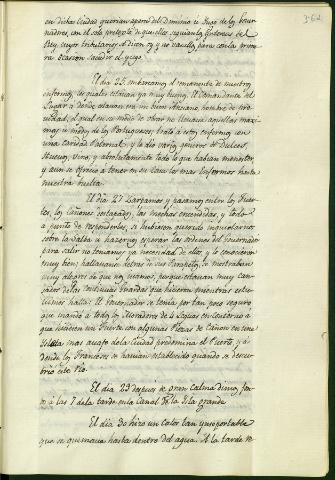 362
en dicha Ciudad querian apoderar del Dominio ò Jugo de los Gover-
nadores, en el solo pretexto de que ellos seguian las Ordenes del
Rey, cuyos tributarios, dicen, oy, y no vasallos, para con la prime-
ra ocasion sacudir el yugo.
El dia 25 embarcamos el remanente de nuestros
enfermos, los quales estavan ya muy buenos. El Comandante del
Lugar a donde estavan era un buen Anciano, hombre de bra-
vedad, el qual en medio de obrar en llevar aquellas maxi-
mas ò modos de los Portugueses, trató à estos enfermos con
una caridad Paternal, y les dio varios generos de Dulces,
Huevos, Vino, y absolutamente todo lo que havian menester,
y aun se ofrecio à tener en su Casa los mas enfermos hasta
nuestra buelta.
El dia 27 Zarpamos y pasamos entre los Fuer-
tes, los Cañones destapados, las mechas encendidas, y todo
a punto de responderles, si huviesen querido inquietarnos
sobre la salida ò hazernos esperar las ordenes del Governador
para salir no teniamos ya necesidad de ellos, y si tuvieron
muy bien hallarnos dentro de sus Cumplidos, se mostravan
muy alegres de que nos vamos, porque estavan muy can-
sados de las continuas Guardas que hicieron mientras estu-
vimos hallà: El Governador se tenia por tan poco seguro
que mandò à todos los Moradores de 20 leguas en contorno à
que hiciesen un Fuerte con algunas Piezas de Cañon en una
Isleta mas avajo de la Ciudad predomina el Puerto, y à
donde los Franceses se havian establecido quando se descu-
brio este Rio.
El dia 29 despues de gran Calma dimos fon-
do à las 7 de la tarde en la Canal de la Isla grande
El dia 30 hizo un calor tan insoportable
que se quemava hasta dentro del agua. A la tarde se